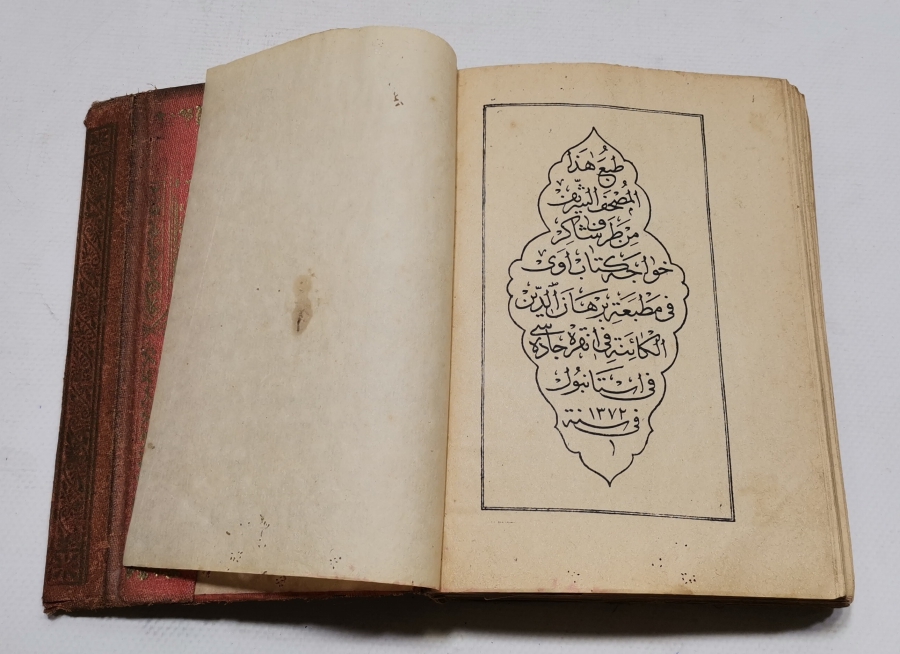 طُبِعَ هٰذَا
المُصْحَفُ الشَّرِيف
مِنْ طَرَفِ شَاكِرْ
خواجه كتاب اوى
فى مَطْبَعَةِ بُرْهَانَ الدِّين
الكَائِنَةِ فى انقره جادّه سى
فى اِسْتَانْبُول
فى سنة ١٣٧٢
١